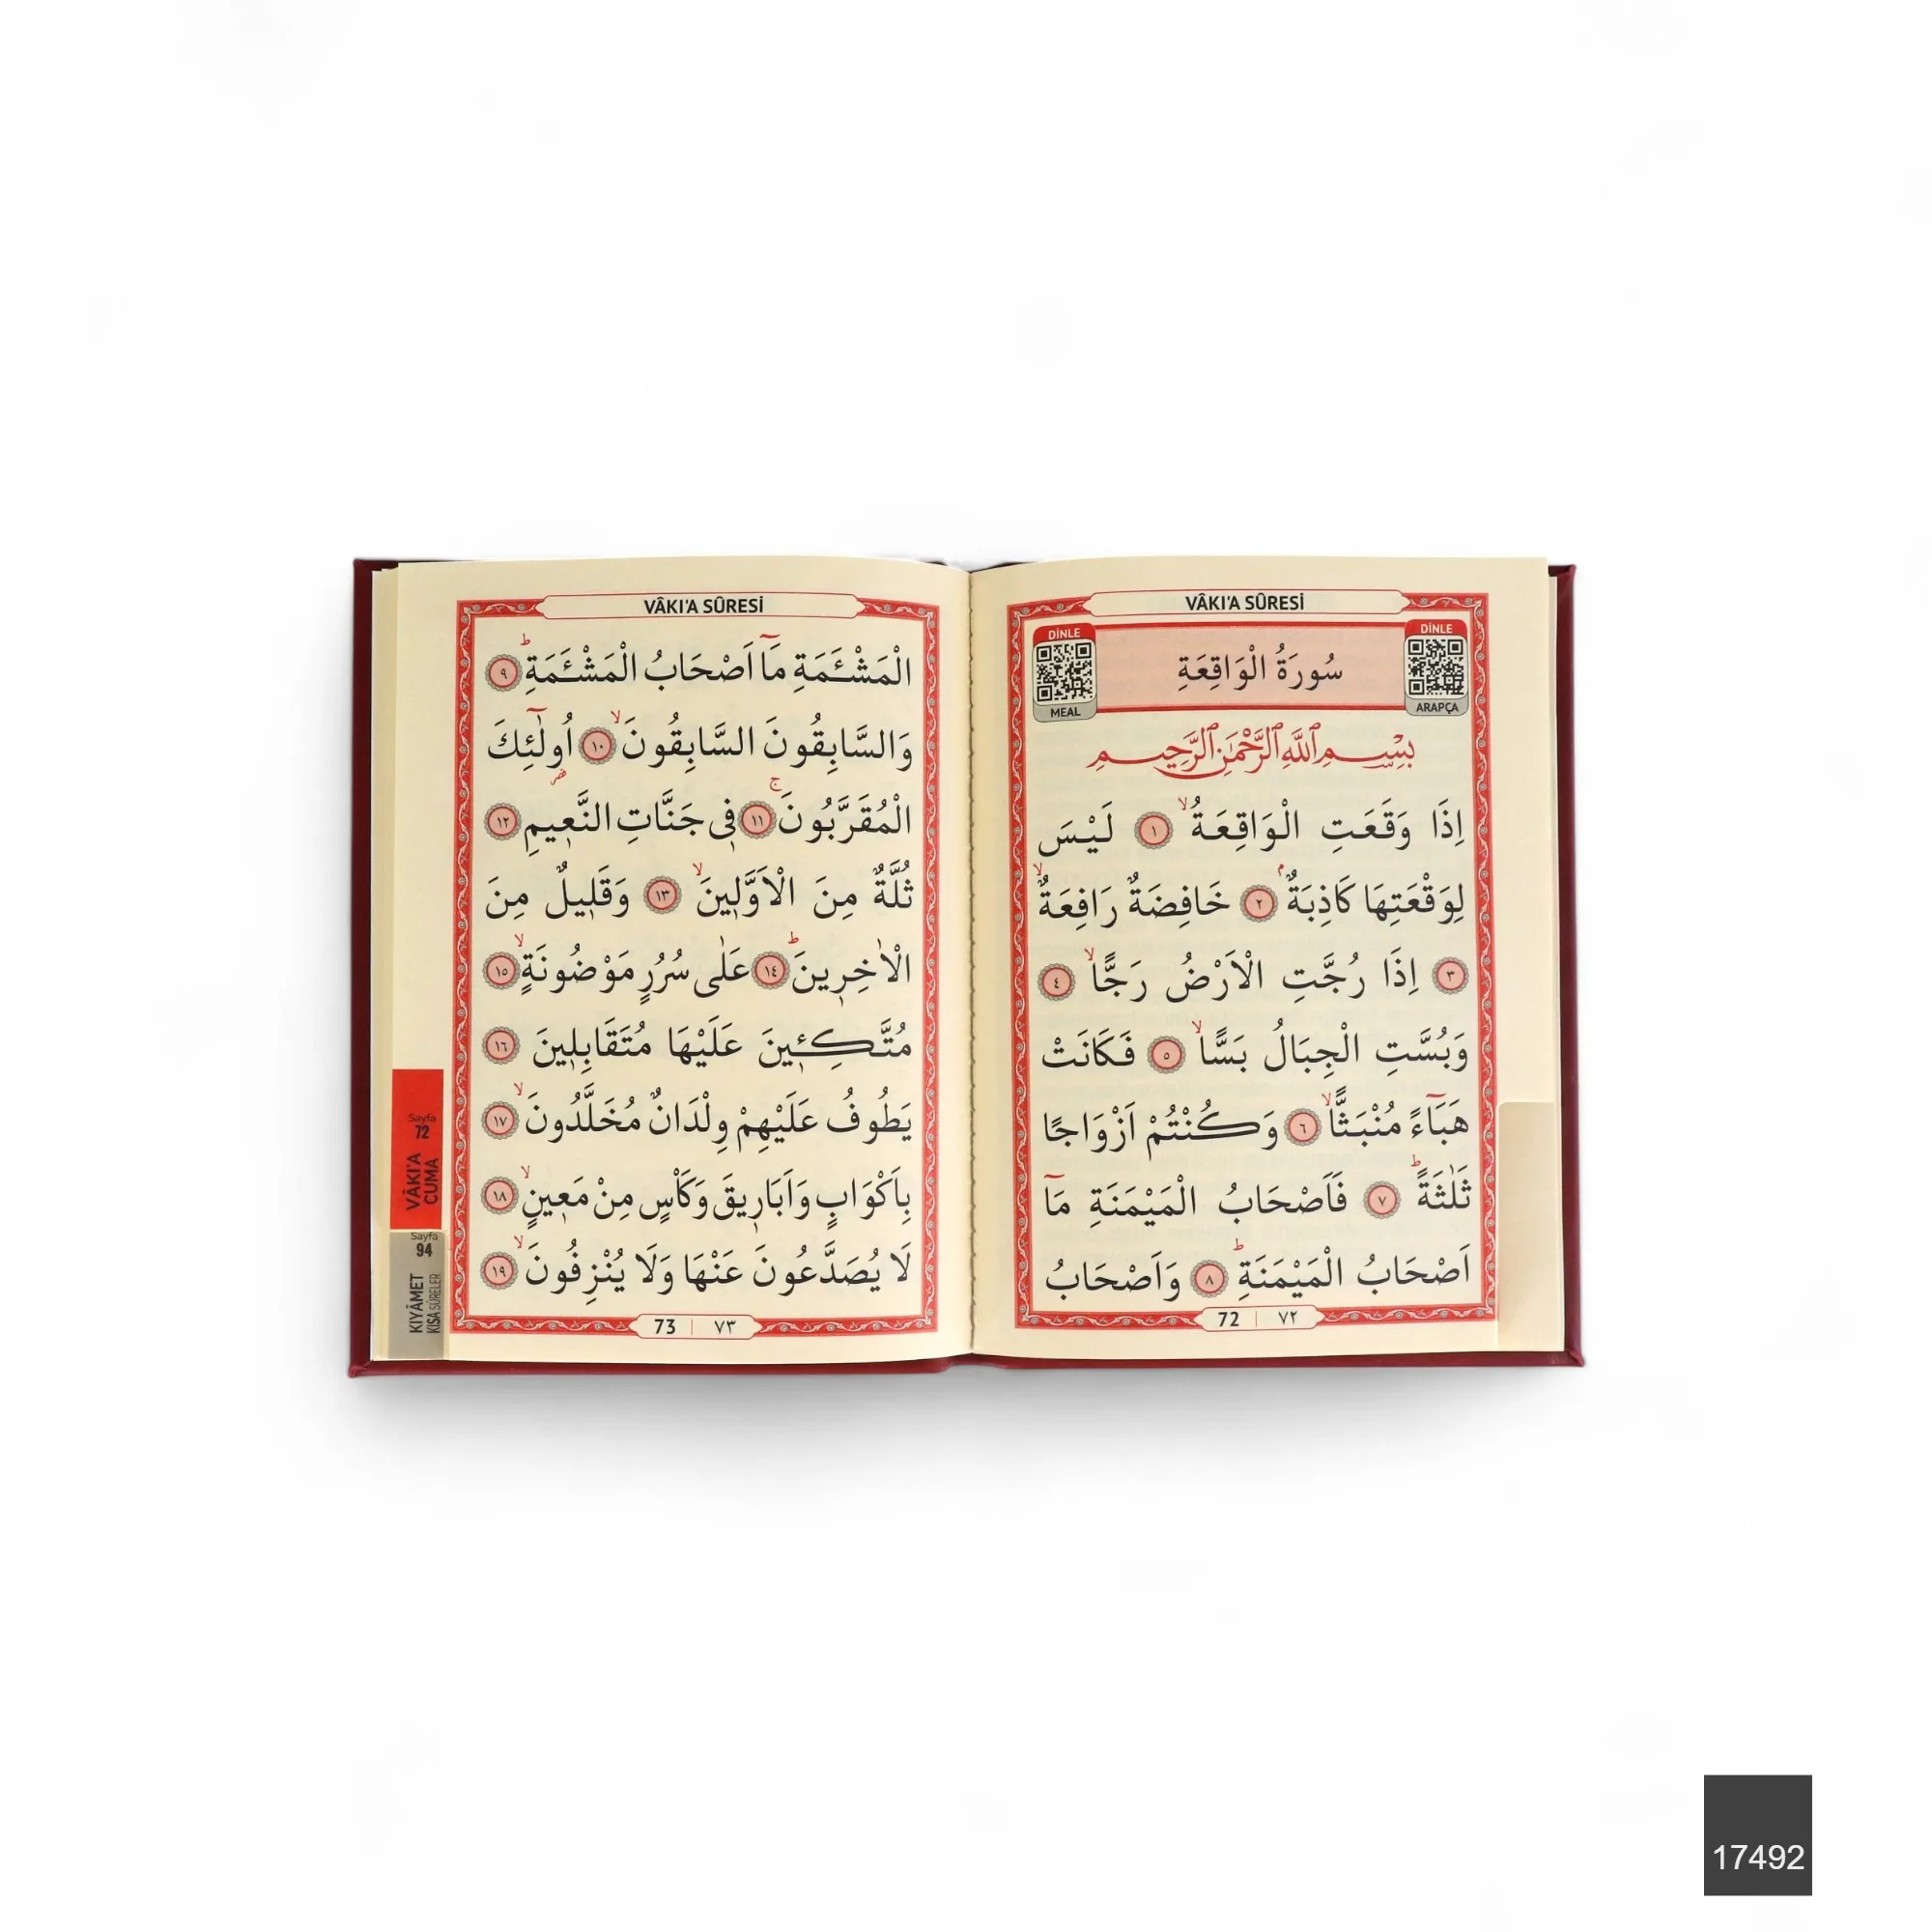 VÂKI'A SÛRESİ
DİNLE
MEAL
سُورَةُ الْوَاقِعَةِ
DİNLE
ARAPÇA
بِسْمِ اللَّهِ الرَّحْمٰنِ الرَّحِيمِ
اِذَا وَقَعَتِ الْوَاقِعَةُۙ ﴿١﴾ لَيْسَ
لِوَقْعَتِهَا كَاذِبَةٌۢ ﴿٢﴾ خَافِضَةٌ رَافِعَةٌۙ
﴿٣﴾ اِذَا رُجَّتِ الْاَرْضُ رَجًّاۙ ﴿٤﴾
وَبُسَّتِ الْجِبَالُ بَسًّاۙ ﴿٥﴾ فَكَانَتْ
هَبَٓاءً مُنْبَثًّاۙ ﴿٦﴾ وَكُنْتُمْ اَزْوَاجًا
ثَلٰثَةًۜ ﴿٧﴾ فَاَصْحَابُ الْمَيْمَنَةِ مَٓا
اَصْحَابُ الْمَيْمَنَةِۜ ﴿٨﴾ وَاَصْحَابُ
72 | ٧٢
VÂKI'A SÛRESİ
الْمَشْـَٔمَةِ مَٓا اَصْحَابُ الْمَشْـَٔمَةِۜ ﴿٩﴾
وَالسَّابِقُونَ السَّابِقُونَۙ ﴿١٠﴾ اُولٰٓئِكَ
الْمُقَرَّبُونَۚ ﴿١١﴾ فٖي جَنَّاتِ النَّعٖيمِ ﴿١٢﴾
ثُلَّةٌ مِنَ الْاَوَّلٖينَۙ ﴿١٣﴾ وَقَلٖيلٌ مِنَ
الْاٰخِرٖينَۜ ﴿١٤﴾ عَلٰى سُرُرٍ مَوْضُونَةٍۙ ﴿١٥﴾
مُتَّكِـٖٔينَ عَلَيْهَا مُتَقَابِلٖينَ ﴿١٦﴾
يَطُوفُ عَلَيْهِمْ وِلْدَانٌ مُخَلَّدُونَۙ ﴿١٧﴾
بِاَكْوَابٍ وَاَبَارٖيقَ وَكَأْسٍ مِنْ مَعٖينٍۙ ﴿١٨﴾
لَا يُصَدَّعُونَ عَنْهَا وَلَا يُنْزِفُونَۙ ﴿١٩﴾
73 | ٧٣
Sayfa
72
VÂKI'A
CUMA
Sayfa
94
KIYÂMET
KISA SÛRELER
17492